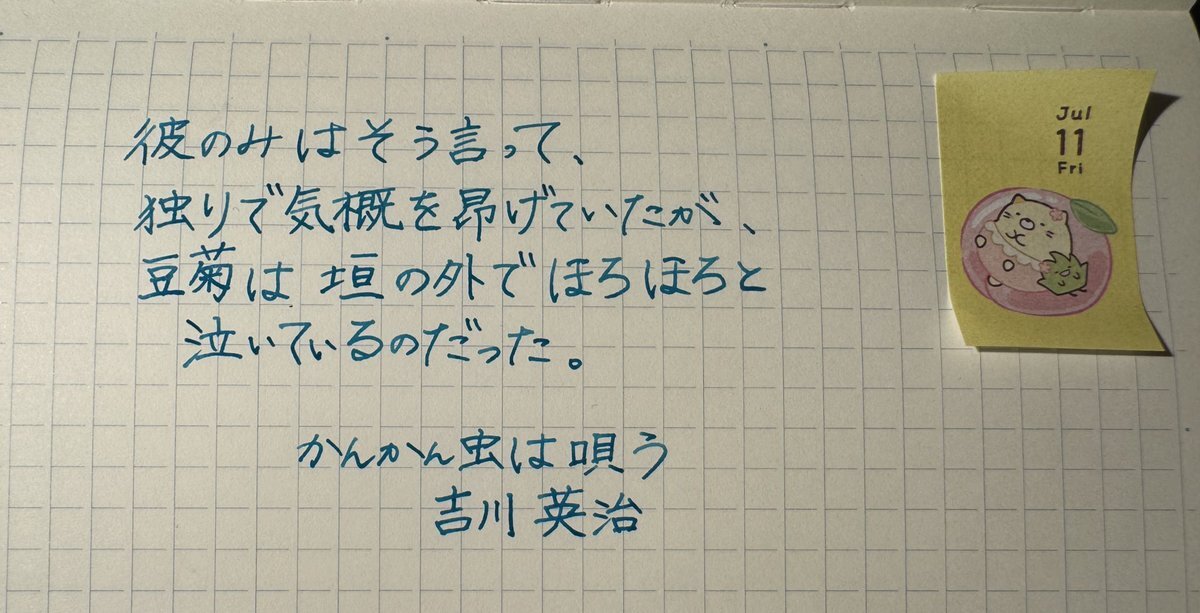 彼のみはそう言って、
独りで気概を昂げていたが、
豆菊は垣の外でほろほろと
泣いているのだった。
かんかん虫は唄う
吉川英治
Jul
11
Fri